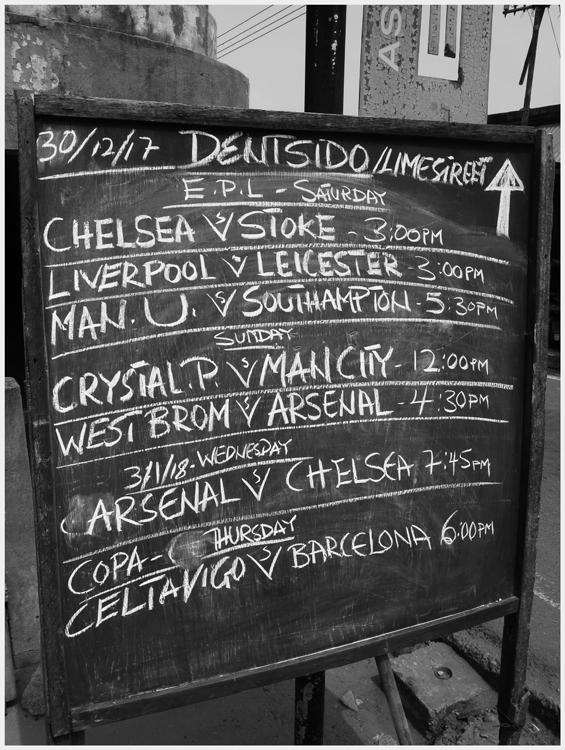 AS
30/12/17 DENTSIDO/LIMESTREET
E.P.L - SATURDAY
CHELSEA VS STOKE - 3:00PM
LIVERPOOL VS LEICESTER - 3:00PM
MAN. U. VS SOUTHAMPTON - 5:30PM
SUNDAY
CRYSTAL.P. VS MAN CITY - 12:00PM
WEST BROM VS ARSENAL - 4:30PM
3/1/18 - WEDNESDAY
ARSENAL VS CHELSEA 7:45PM
COPA - THURSDAY
CELTAVIGO VS BARCELONA 6:00PM